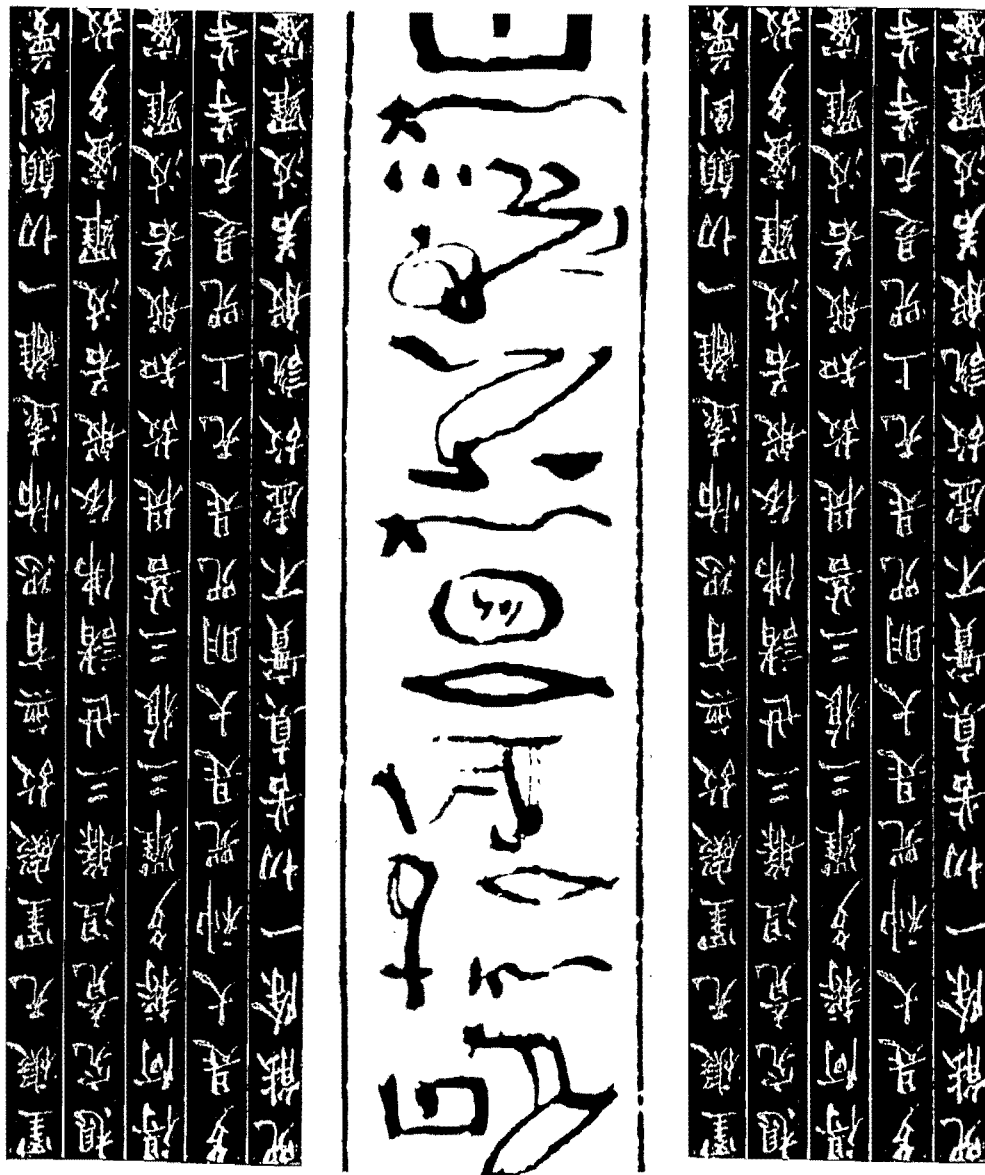 罣礙无罣礙故無有恐怖遠離一切顛倒夢
想究竟涅槃三世諸佛依般若波羅蜜多故
得阿耨多羅三藐三菩提故知般若波羅蜜
多是大神咒是大明咒是无上咒是无等等
咒能除一切苦真實不虛故說般若波羅蜜
罣礙无罣礙故無有恐怖遠離一切顛倒夢
想究竟涅槃三世諸佛依般若波羅蜜多故
得阿耨多羅三藐三菩提故知般若波羅蜜
多是大神咒是大明咒是无上咒是无等等
咒能除一切苦真實不虛故說般若波羅蜜